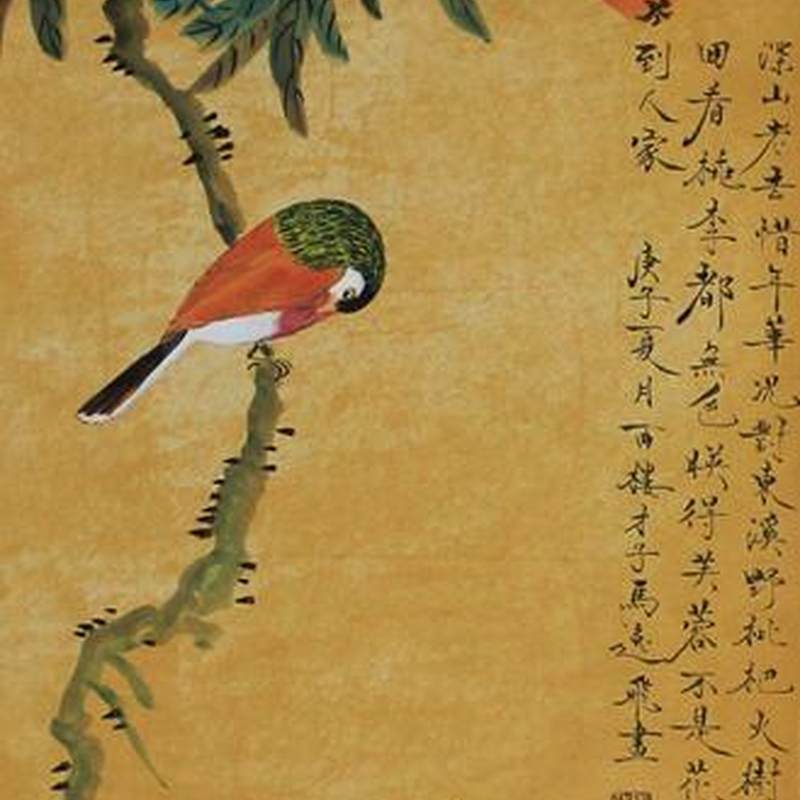 深山老去惜年華况對東溪野枇杷火樹
回看桃李都無色映得芙蓉不是花
到人家
庚子夏月百樓才子馬逸飛畫